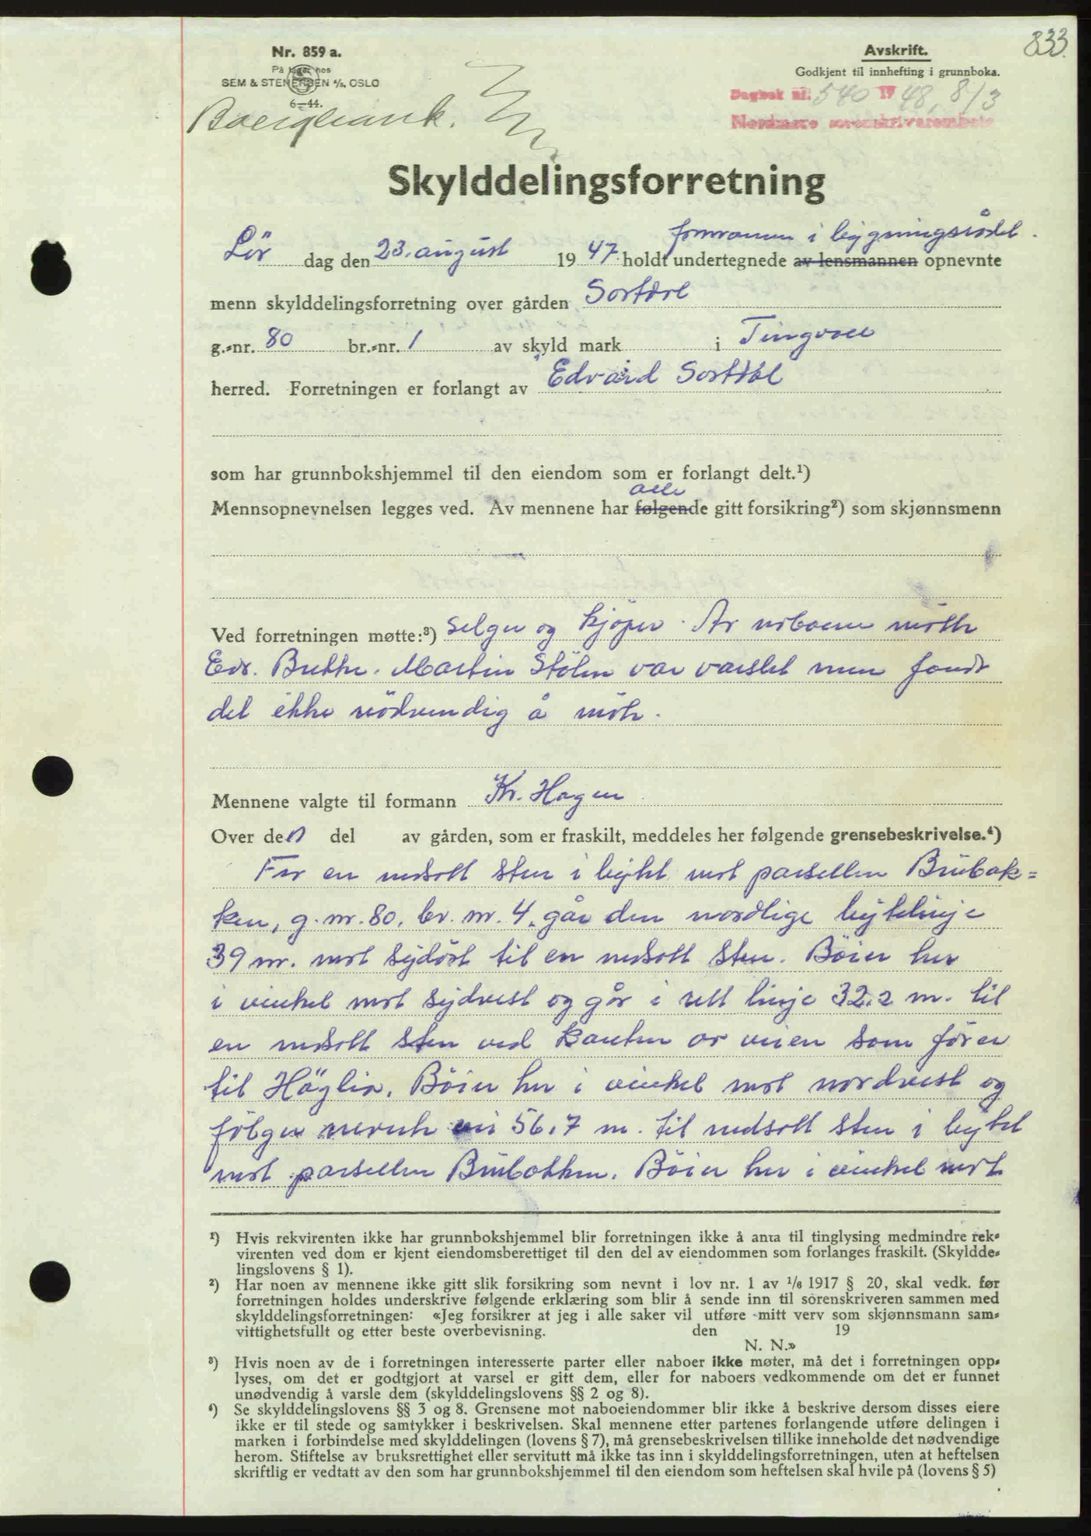 833.
Nr. 859 a.
På lager hos
SEM & STENERSEN A/S, OSLO
6-44.
Avskrift.
Godkjent til innhefting i grunnboka.
Dagbok nr. 540 1948, 8/3
Nordmøre sorenskriverembete
Skylddelingsforretning
Lör dag den 23. august 1947 holdt undertegnede av lensmannen opnevnte
formannen i bygningsrådet.
menn skylddelingsforretning over gården Sortdal
g.-nr. 80 br.-nr. 1 av skyld mark i Tingvoll
herred. Forretningen er forlangt av Edvard Sortdal
som har grunnbokshjemmel til den eiendom som er forlangt delt.¹)
alle
Mennsopnevnelsen legges ved. Av mennene har følgende gitt forsikring²) som skjønnsmenn
Ved forretningen møtte:³) selger og kjöper. Av naboene mötte
Edv. Martin Stölen var varslet men fandt
det ikke nödvendig å möte.
Mennene valgte til formann Kr. Hagen
Over den del av gården, som er fraskilt, meddeles her følgende grensebeskrivelse.⁴)
Fra en nedsatt sten i bytet mot parsellen Brubak=
ken, g. nr. 80, br. nr. 4, går den nordlige bytelinje
39 m. mot sydöst til en nedsatt sten. Böier her
i vinkel mot sydvest og går i rett linje 32,2 m. til
en nedsatt sten ved kanten av veien som förer
til Höglia. Böier her i vinkel mot nordvest og
fölger nevnte vei 56,7 m. til nedsatt sten i bytet
mot parsellen Brubakken. Böier her i vinkel mot
¹) Hvis rekvirenten ikke har grunnbokshjemmel blir forretningen ikke å anta til tinglysing medmindre rek-
virenten ved dom er kjent eiendomsberettiget til den del av eiendommen som forlanges fraskilt. (Skyldde-
lingslovens § 1).
²) Har noen av mennene ikke gitt slik forsikring som nevnt i lov nr. 1 av 1/6 1917 § 20, skal vedk. før
forretningen holdes underskrive følgende erklæring som blir å sende inn til sorenskriveren sammen med
skylddelingsforretningen: «Jeg forsikrer at jeg i alle saker vil utføre mitt verv som skjønnsmann sam-
vittighetsfullt og etter beste overbevisning. den 19
N. N.»
³) Hvis noen av de i forretningen interesserte parter eller naboer ikke møter, må det i forretningen opp-
lyses, om det er godtgjort at varsel er gitt dem, eller for naboers vedkommende om det er funnet
unødvendig å varsle dem (skylddelingslovens §§ 2 og 8).
⁴) Se skylddelingslovens §§ 3 og 8. Grensene mot naboeiendommer blir ikke å beskrive dersom disses eiere
ikke er til stede og samtykker i beskrivelsen. Skal mennene etter partenes forlangende utføre delingen i
marken i forbindelse med skylddelingen (lovens § 7), må grensebeskrivelsen tillike inneholde det nødvendige
herom. Stiftelse av bruksrettighet eller servitutt må ikke tas inn i skylddelingsforretningen, uten at heftelsen
skriftlig er vedtatt av den som har grunnbokshjemmel til den eiendom som heftelsen skal hvile på (lovens § 5)